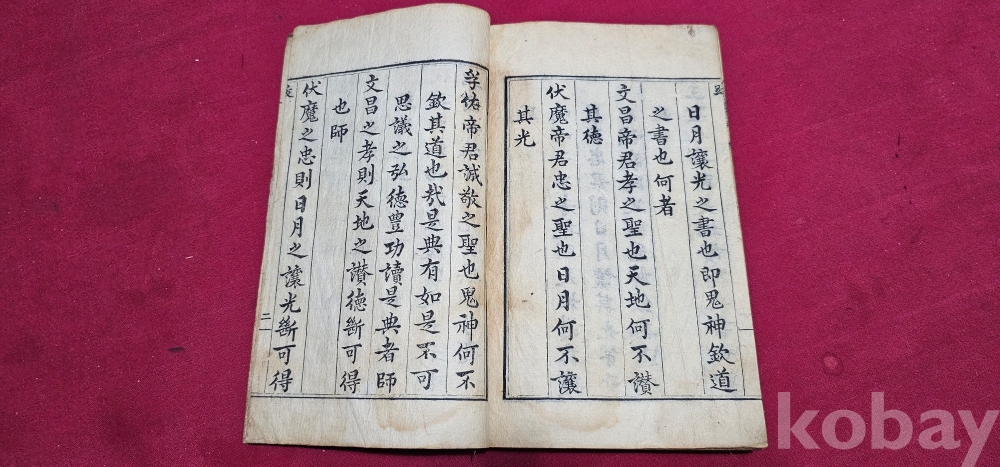 日月讓光之書也即鬼神欽道
之書也何者
文昌帝君孝之聖也天地何不讃
其德
伏魔帝君忠之聖也日月何不讓
其光
孚佑帝君誠敬之聖也鬼神何不
欽其道也㢤是典有如是不可
思議之弘德豐功讀是典者師
文昌之孝則天地之讃德斷可得
也師
伏魔之忠則日月之讓光斷可得
二
kobay